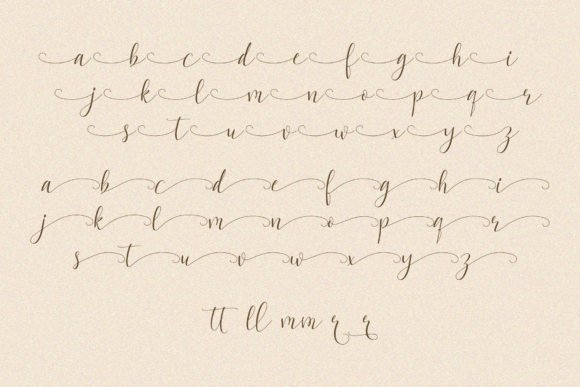 a b c d e f g h i
j k l m n o p q r
s t u v w x y z
a b c d e f g h i
j k l m n o p q r
s t u v w x y z
tt ll mm r r